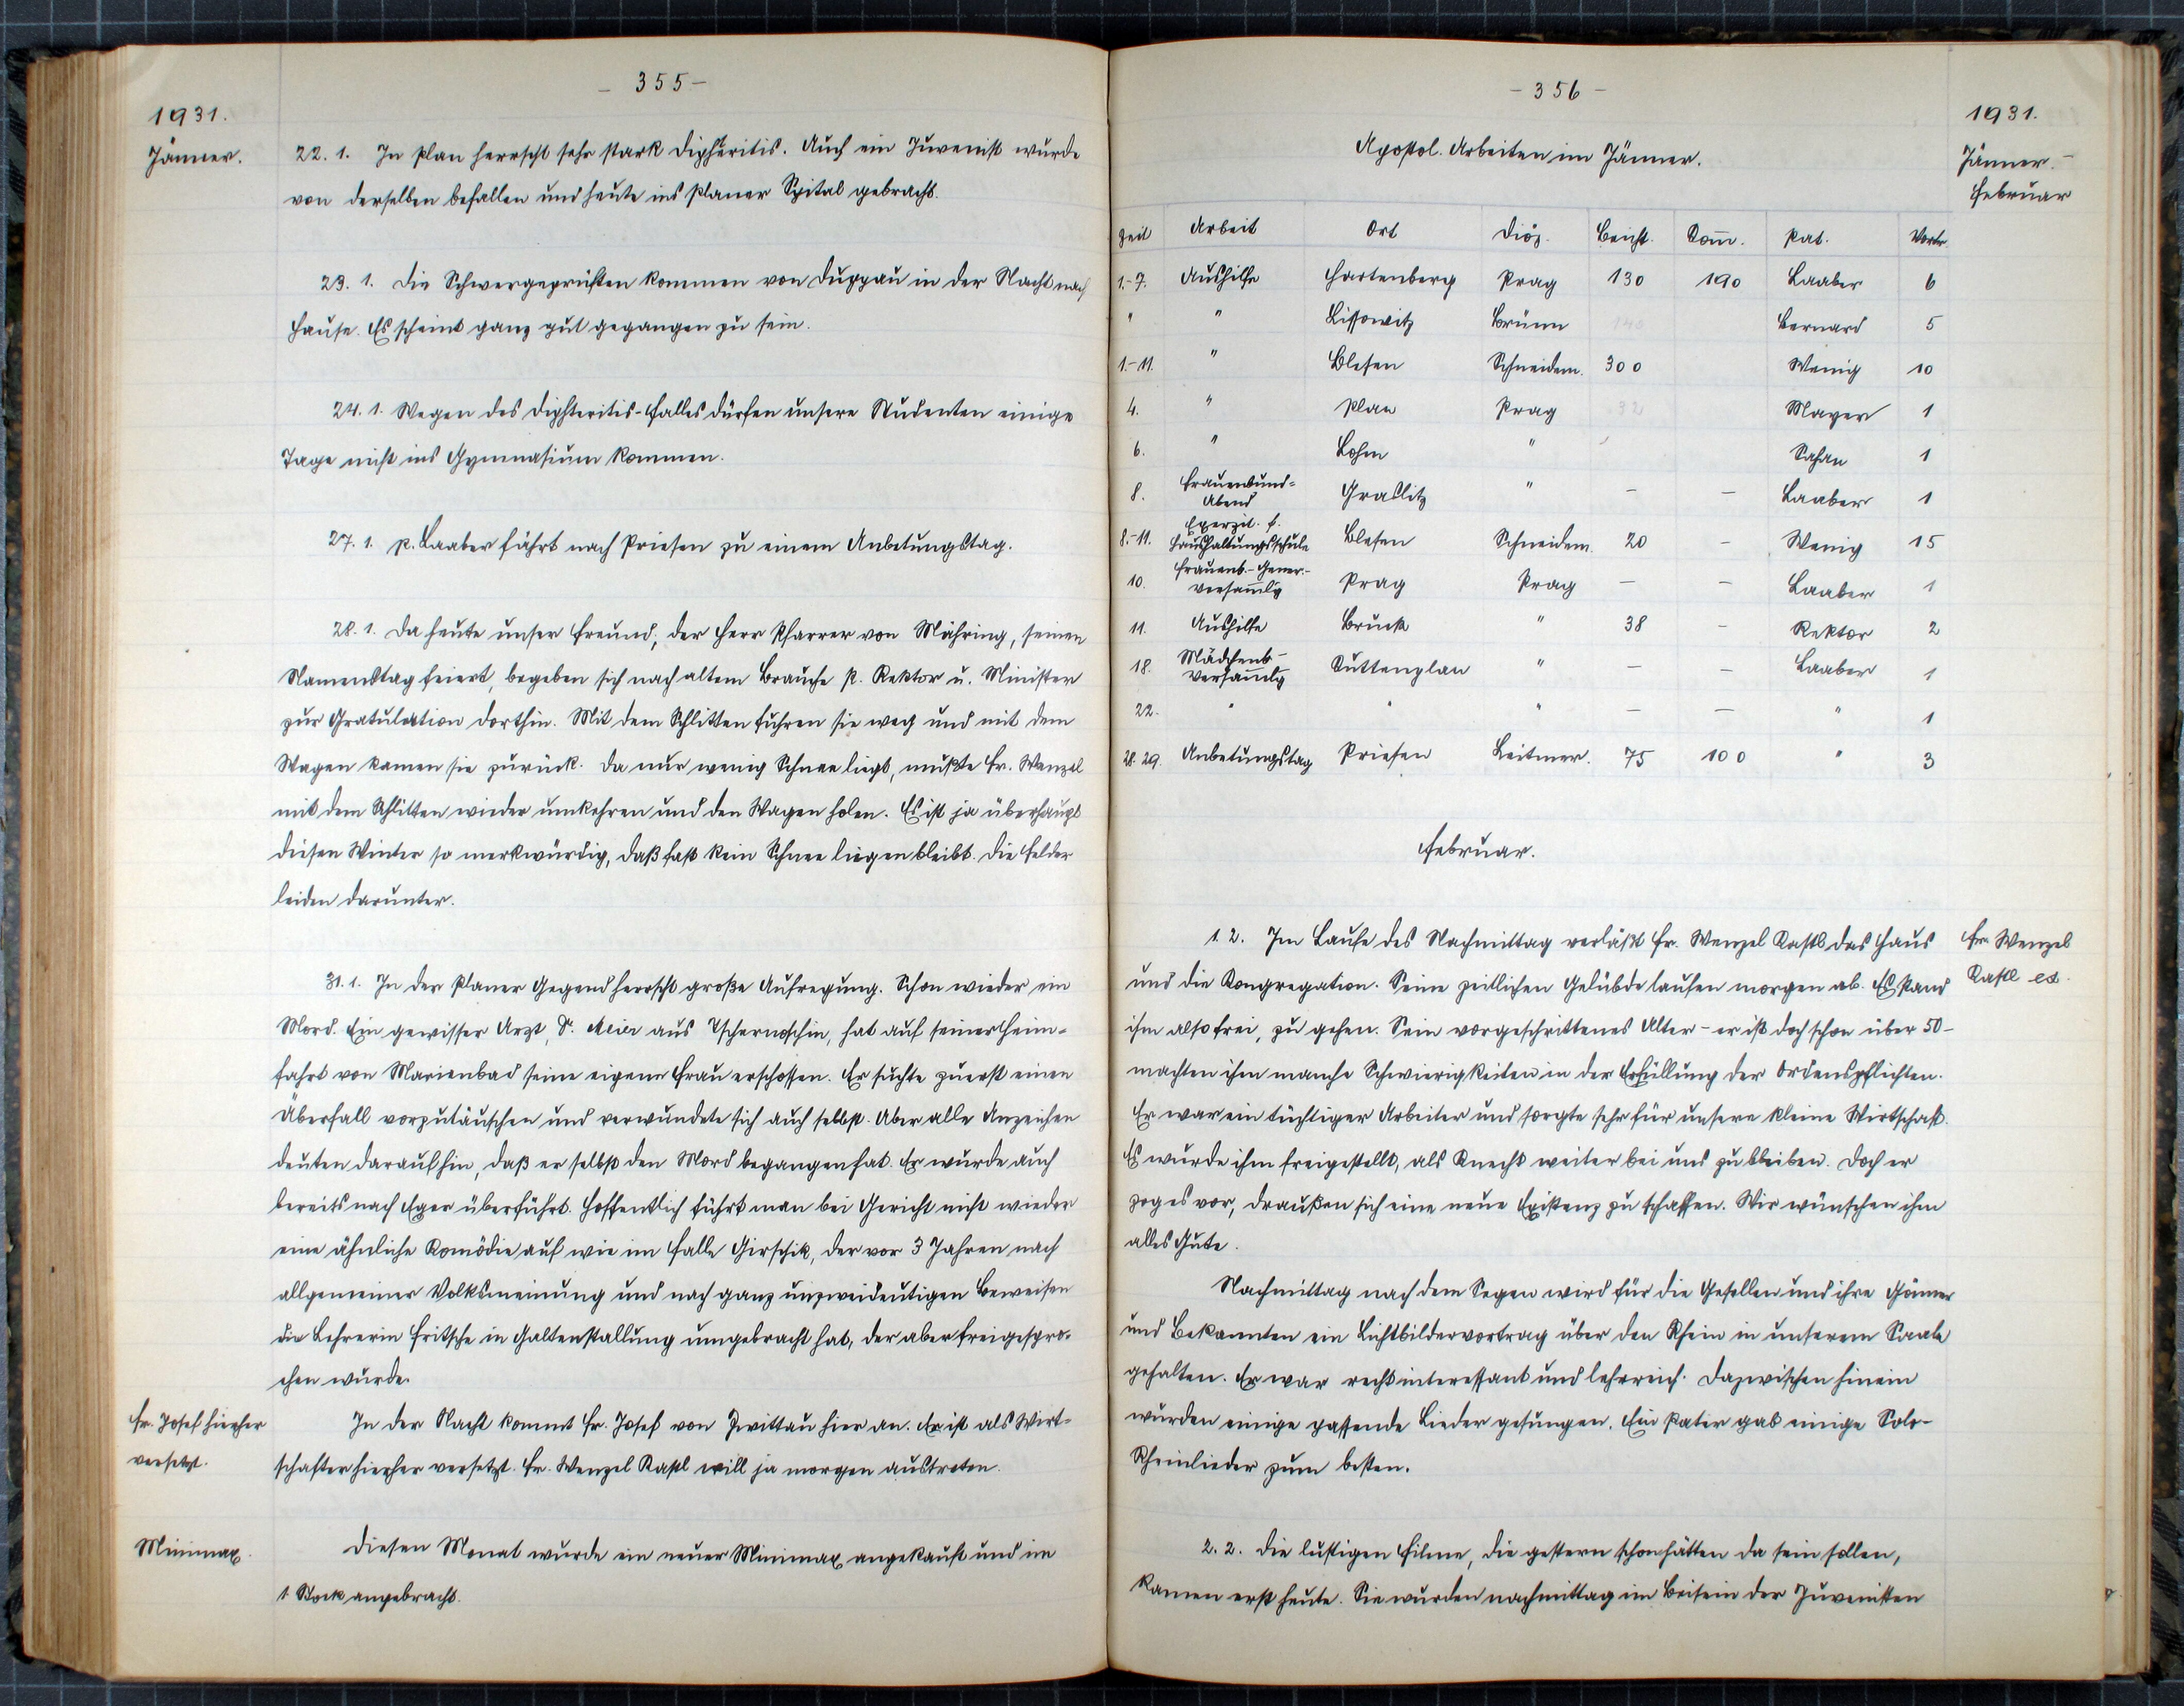 - 355 -
1931.
Jänner.
22. 1. In Plan herrscht sehr stark Diphteritis. Auch ein Juvenist wurde
von derselben befallen und heute ins Planer Spital gebracht.
23. 1. Die Schwergeprüften kommen von Duppau in der Nacht nach
Hause. Es scheint ganz gut gegangen zu sein.
24. 1. Wegen des Diphteritis-Falles dürfen unsere Studenten einige
Tage nicht ins Gymnasium kommen.
27. 1. P. Laaber fährt nach Priesen zu einem Anbetungstag.
28. 1. Da heute unser Freund, der Herr Pfarrer von Mähring, seinen
Namenstag feiert, begeben sich nach altem Brauche P. Rektor u. Minister
zur Gratulation dorthin. Mit dem Schlitten fuhren sie weg und mit dem
Wagen kamen sie zurück. Da nur wenig Schnee liegt, mußte Fr. Wenzel
mit dem Schlitten wieder umkehren und den Wagen holen. Es ist ja überhaupt
diesen Winter so merkwürdig, daß fast kein Schnee liegen bleibt. Die Felder
leiden darunter.
31. 1. In der Planer Gegend herrscht große Aufregung. Schon wieder ein
Mord. Ein gewisser Arzt, Dr. Meier aus Tschernoschin, hat auf seiner Heim-
fahrt von Marienbad seine eigene Frau erschossen. Er suchte zuerst einen
Überfall vorzutäuschen und verwundete sich auch selbst. Aber alle Anzeichen
deuten darauf hin, daß er selbst den Mord begangen hat. Er wurde auch
bereits nach Eger überführt. Hoffentlich führt man bei Gericht nicht wieder
eine ähnliche Komödie auf wie im Falle Girschik, der vor 3 Jahren nach
allgemeiner Volksmeinung und nach ganz unzweideutigen Beweisen
die Lehrerin Fritsche in Galtenstallung umgebracht hat, der aber freigespro-
chen wurde.
Fr. Josef hierher
versetzt.
In der Nacht kommt Fr. Josef von Zwittau hier an. Er ist als Wirt-
schafter hierher versetzt. Fr. Wenzel Kastl will ja morgen austreten.
Minimax.
Diesen Monat wurde ein neuer Minimax angekauft und im
1. Stock angebracht.
- 356 -
1931.
Jänner. -
Februar
Apostol. Arbeiten im Jänner.
Zeit Arbeit Ort Diöz. Beicht. Kom̄. Pat. Vortr.
1.-7. Aushilfe Hartenberg Prag 130 190 Laaber 6
" " Lissowitz Brünn 140 Bernard 5
1.-11. " Blesen Schneidem. 300 Wenig 10
4. " Plan Prag 32 Mayer 1
6. " Lohm " Sahan 1
8. Frauenbund-Abend Graslitz " - - Laaber 1
8.-11. Exerzit. f. Haushaltungsschule Blesen Schneidem. 20 - Wenig 15
10. Frauenb.-Gener.-versam̄lg Prag Prag - - Laaber 1
11. Aushilfe Bruck " 38 - Rektor 2
18. Mädchenb-versam̄lg Kuttenplan " - - Laaber 1
22. " " " - - " 1
28. 29. Anbetungstag Priesen Leitmer. 75 100 " 3
Februar.
1. 2. Im Laufe des Nachmittag verläßt Fr. Wenzel Kastl das Haus
und die Kongregation. Seine zeitlichen Gelübde laufen morgen ab. Es stand
ihm also frei, zu gehen. Sein vorgeschrittenes Alter - er ist doch schon über 50 -
machten ihm manche Schwierigkeiten in der Erfüllung der Ordenspflichten.
Er war ein tüchtiger Arbeiter und sorgte sehr für unsere kleine Wirtschaft.
Es wurde ihm freigestellt, als Knecht weiter bei uns zu bleiben. Doch er
zog es vor, draußen sich eine neue Existenz zu schaffen. Wir wünschen ihm
alles Gute.
Fr. Wenzel
Kastl ex.
Nachmittag nach dem Segen wird für die Gesellen und ihre Gönner
und Bekannten ein Lichtbildervortrag über den Rhein in unserem Saale
gehalten. Er war recht interessant und lehrreich. Dazwischen hinein
wurden einige passende Lieder gesungen. Ein Pater gab einige Solo-
Rheinlieder zum besten.
2. 2. Die lustigen Filme, die gestern schon hätten da sein sollen,
kamen erst heute. Sie wurden nachmittag im Beisein der Juvenisten